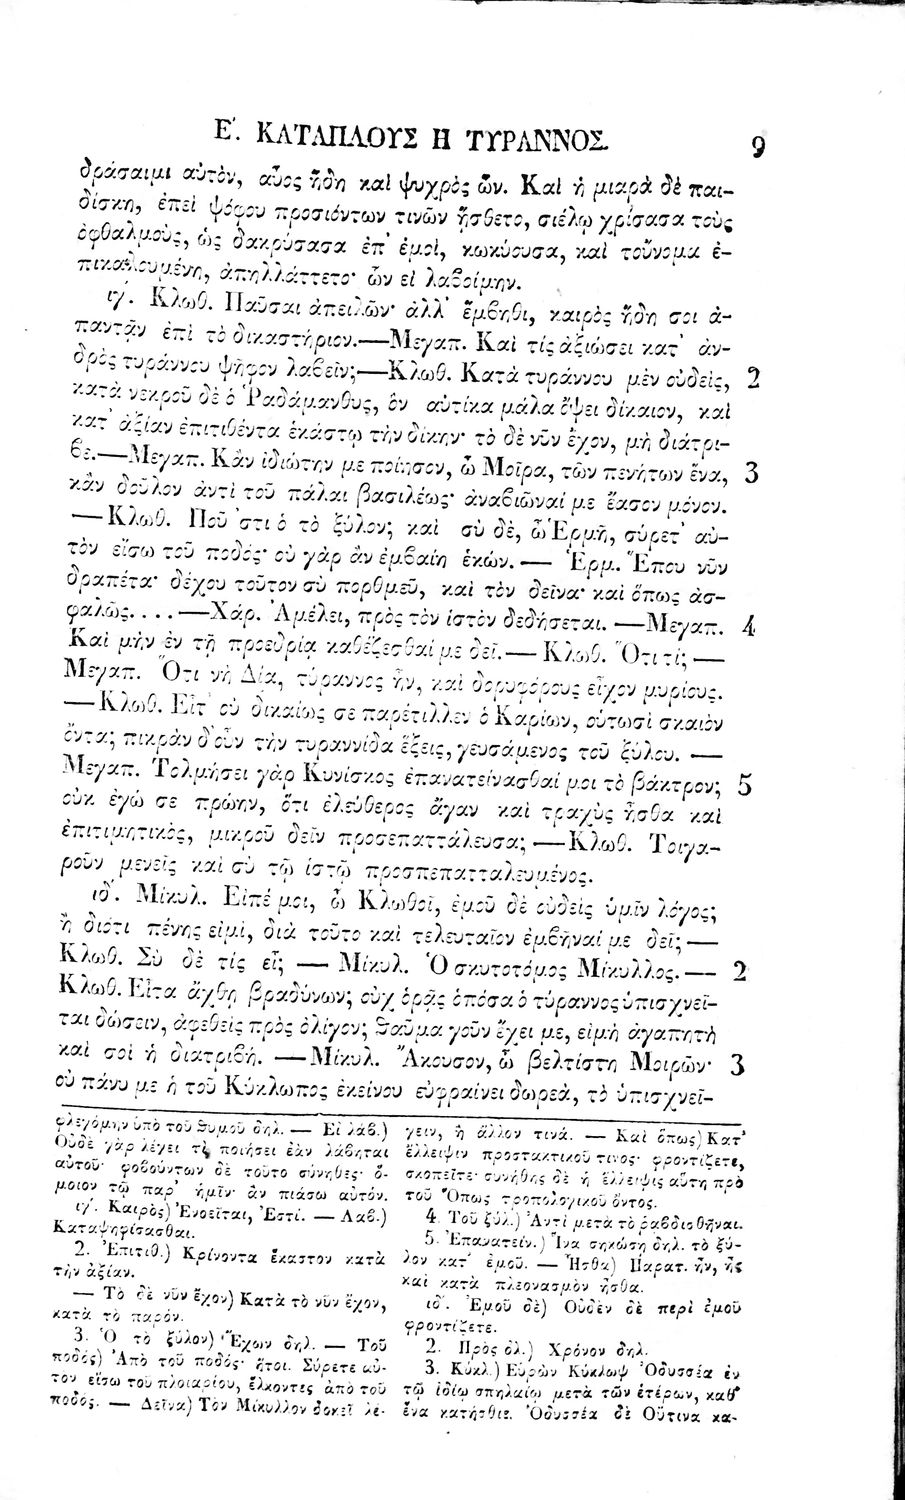 Ε΄. ΚΑΤΑΠΛΟΥΣ Η ΤΥΡΑΝΝΟΣ. 9
δράσαιμι αὐτὸν, αὖος ἤδη καὶ ψυχρὸς ὤν. Καὶ ἡ μιαρὰ δὲ παι-
δίσκη, ἐπεὶ ψόφου προσιόντων τινῶν ᾔσθετο, σιέλῳ χρίσασα τοὺς
ὀφθαλμοὺς, ὡς δακρύσασα ἐπ' ἐμοὶ, κωκύουσα, καὶ τοὔνομα ἐ-
πικαλουμένη, ἀπηλλάττετο· ὧν εἰ λαβοίμην.
ιγ΄. Κλωθ. Παῦσαι ἀπειλῶν· ἀλλ' ἔμβηθι, καιρὸς ἤδη σοι ἀ-
παντᾷν ἐπὶ τὸ δικαστήριον.—Μεγαπ. Καὶ τίς ἀξιώσει κατ' ἀν-
δρὸς τυράννου ψῆφον λαβεῖν;—Κλωθ. Κατὰ τυράννου μὲν οὐδεὶς, 2
κατὰ νεκροῦ δὲ ὁ Ῥαδάμανθυς, ὃν αὐτίκα μάλα ὄψει δίκαιον, καὶ
κατ' ἀξίαν ἐπιτιθέντα ἑκάστῳ τὴν δίκην· τὸ δὲ νῦν ἔχον, μὴ διάτρι-
βε.—Μεγαπ. Κἂν ἰδιώτην με ποίησον, ὦ Μοῖρα, τῶν πενήτων ἕνα, 3
κἂν δοῦλον ἀντὶ τοῦ πάλαι βασιλέως· ἀναβιῶναί με ἔασον μόνον.
—Κλωθ. Ποῦ 'στι ὁ τὸ ξύλον; καὶ σὺ δὲ, ὦ Ἑρμῆ, σύρετ' αὐ-
τὸν εἴσω τοῦ ποδός· οὐ γὰρ ἂν ἐμβαίη ἑκών.— Ἑρμ. Ἕπου νῦν
δραπέτα· δέχου τοῦτον σὺ πορθμεῦ, καὶ τὸν δεῖνα· καὶ ὅπως ἀσ-
φαλῶς.... —Χάρ. Ἀμέλει, πρὸς τὸν ἱστὸν δεδήσεται. —Μεγαπ. 4
Καὶ μὴν ἐν τῇ προεδρίᾳ καθέζεσθαί με δεῖ.— Κλωθ. Ὅτι τί; —
Μεγαπ. Ὅτι νὴ Δία, τύραννος ἦν, καὶ δορυφόρους εἶχον μυρίους.
—Κλωθ. Εἶτ' οὐ δικαίως σε παρέτιλλεν ὁ Καρίων, οὑτωσὶ σκαιὸν
ὄντα; πικρὰν δ' οὖν τὴν τυραννίδα ἕξεις, γευσάμενος τοῦ ξύλου. —
Μεγαπ. Τολμήσει γὰρ Κυνίσκος ἐπανατείνασθαί μοι τὸ βάκτρον; 5
οὐκ ἐγώ σε πρώην, ὅτι ἐλεύθερος ἄγαν καὶ τραχὺς ἦσθα καὶ
ἐπιτιμητικὸς, μικροῦ δεῖν προσεπαττάλευσα; —Κλωθ. Τοιγα-
ροῦν μενεῖς καὶ σὺ τῷ ἱστῷ προσπεπατταλευμένος.
ιδ΄. Μίκυλ. Εἰπέ μοι, ὦ Κλωθοῖ, ἐμοῦ δὲ οὐδεὶς ὑμῖν λόγος;
ἢ διότι πένης εἰμὶ, διὰ τοῦτο καὶ τελευταῖον ἐμβῆναί με δεῖ; —
Κλωθ. Σὺ δὲ τίς εἶ; — Μίκυλ. Ὁ σκυτοτόμος Μίκυλλος.— 2
Κλωθ. Εἶτα ἄχθῃ βραδύνων; οὐχ ὁρᾷς ὁπόσα ὁ τύραννος ὑπισχνεῖ-
ται δώσειν, ἀφεθεὶς πρὸς ὀλίγον; θαῦμα γοῦν ἔχει με, εἰ μὴ ἀγαπητὴ
καὶ σοὶ ἡ διατριβή. —Μίκυλ. Ἄκουσον, ὦ βελτίστη Μοιρῶν· 3
οὐ πάνυ με ἡ τοῦ Κύκλωπος ἐκείνου εὐφραίνει δωρεὰ, τὸ ὑπισχνεῖ-
φλεγόμην ὑπὸ τοῦ θυμοῦ δηλ. — Εἰ λάβ.)
Οὐδὲ γὰρ λέγει τὶ ποιήσει ἐὰν λάβηται
αὐτοῦ· φοβούντων δὲ τοῦτο σύνηθες· ὅ-
μοιον τῷ παρ' ἡμῖν· ἂν πιάσω αὐτόν.
ιγ΄. Καιρὸς) Ἐνοεῖται, Ἐστί. — Λαβ.)
Καταψηφίσασθαι.
2. Ἐπιτιθ.) Κρίνοντα ἕκαστον κατὰ
τὴν ἀξίαν.
— Τὸ δὲ νῦν ἔχον) Κατὰ τὸ νῦν ἔχον,
κατὰ τὸ παρόν.
3. Ὁ τὸ ξύλον) Ἔχων δηλ. — Τοῦ
ποδὸς) Ἀπὸ τοῦ ποδός· ἤτοι. Σύρετε αὐ-
τὸν εἴσω τοῦ πλοιαρίου, ἕλκοντες ἀπὸ τοῦ
ποδός. — Δεῖνα) Τὸν Μίκυλλον δοκεῖ λέ-
γειν, ἢ ἄλλον τινά. — Καὶ ὅπως) Κατ'
ἔλλειψιν προστακτικοῦ τινος· φροντίζετε,
σκοπεῖτε· συνήθης δὲ ἡ ἔλλειψις αὕτη πρὸ
τοῦ Ὅπως τροπολογικοῦ ὄντος.
4. Τοῦ ξύλ.) Ἀντὶ μετὰ τὸ ραβδισθῆναι.
5. Ἐπανατείν.) Ἵνα σηκώσῃ δηλ. τὸ ξύ-
λον κατ' ἐμοῦ. — Ἦσθα) Παρατ. ἦν, ἦς
καὶ κατὰ πλεονασμὸν ἦσθα.
ιδ΄. Ἐμοῦ δὲ) Οὐδὲν δὲ περὶ ἐμοῦ
φροντίζετε.
2. Πρὸς ὀλ.) Χρόνον δηλ.
3. Κύκλ.) Εὑρὼν Κύκλωψ Ὀδυσσέα ἐν
τῷ ἰδίῳ σπηλαίῳ μετὰ τῶν ἑτέρων, καθ'
ἕνα κατήσθιε. Ὀδυσσέα δὲ Οὔτινα κα-